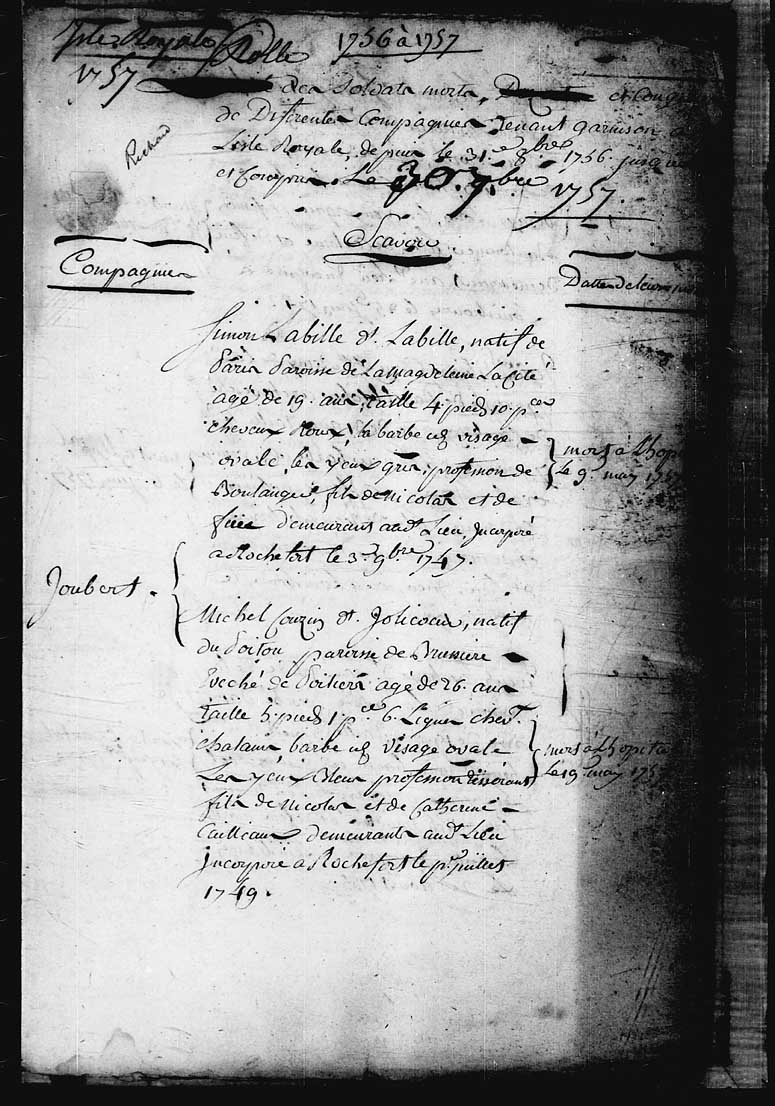 Isle Royale Rolle 1756 à 1757
1757
des Soldats morts, et
de Diferentes Compagnies Tenant garnison a
Lisle Royale, depuis le 31e 8bre 1756. jusques
et Compris Le 30. 7.bre 1757.
Richard
Scavoir
Compagnies
Dattes de leurs
Simon Labille dt. Labille, natif de
Paris Paroisse de La Magdeleine La Cité
agé de 19. ans, taille 4. pieds 10. pces
cheveux Roux, la barbe id visage
ovale, les yeux gris, profession de
Boulanger, fils de Nicolas et de
demeurans audt. Lieu, Incorporé
a Rochefort le 3e 9bre 1747.
mort à Lhop
Le 9. may 1757
Joubert.
Michel Couzin dt. Jolicoeur, natif
du Poitou paroisse de Brussiere
Eveché de Poitiers agé de 26. ans
Taille 5. pieds 1. pce 6. Lignes chevx.
chatains barbe id visage ovale
Les yeux Bleus profession Tisserant
fils de Nicolas et de Catherine
Cailleaux demeurants audt. Lieu
Incorporé a Rochefort le pr. juillet
1749.
mort à Lhopital
Le 19. may 1757